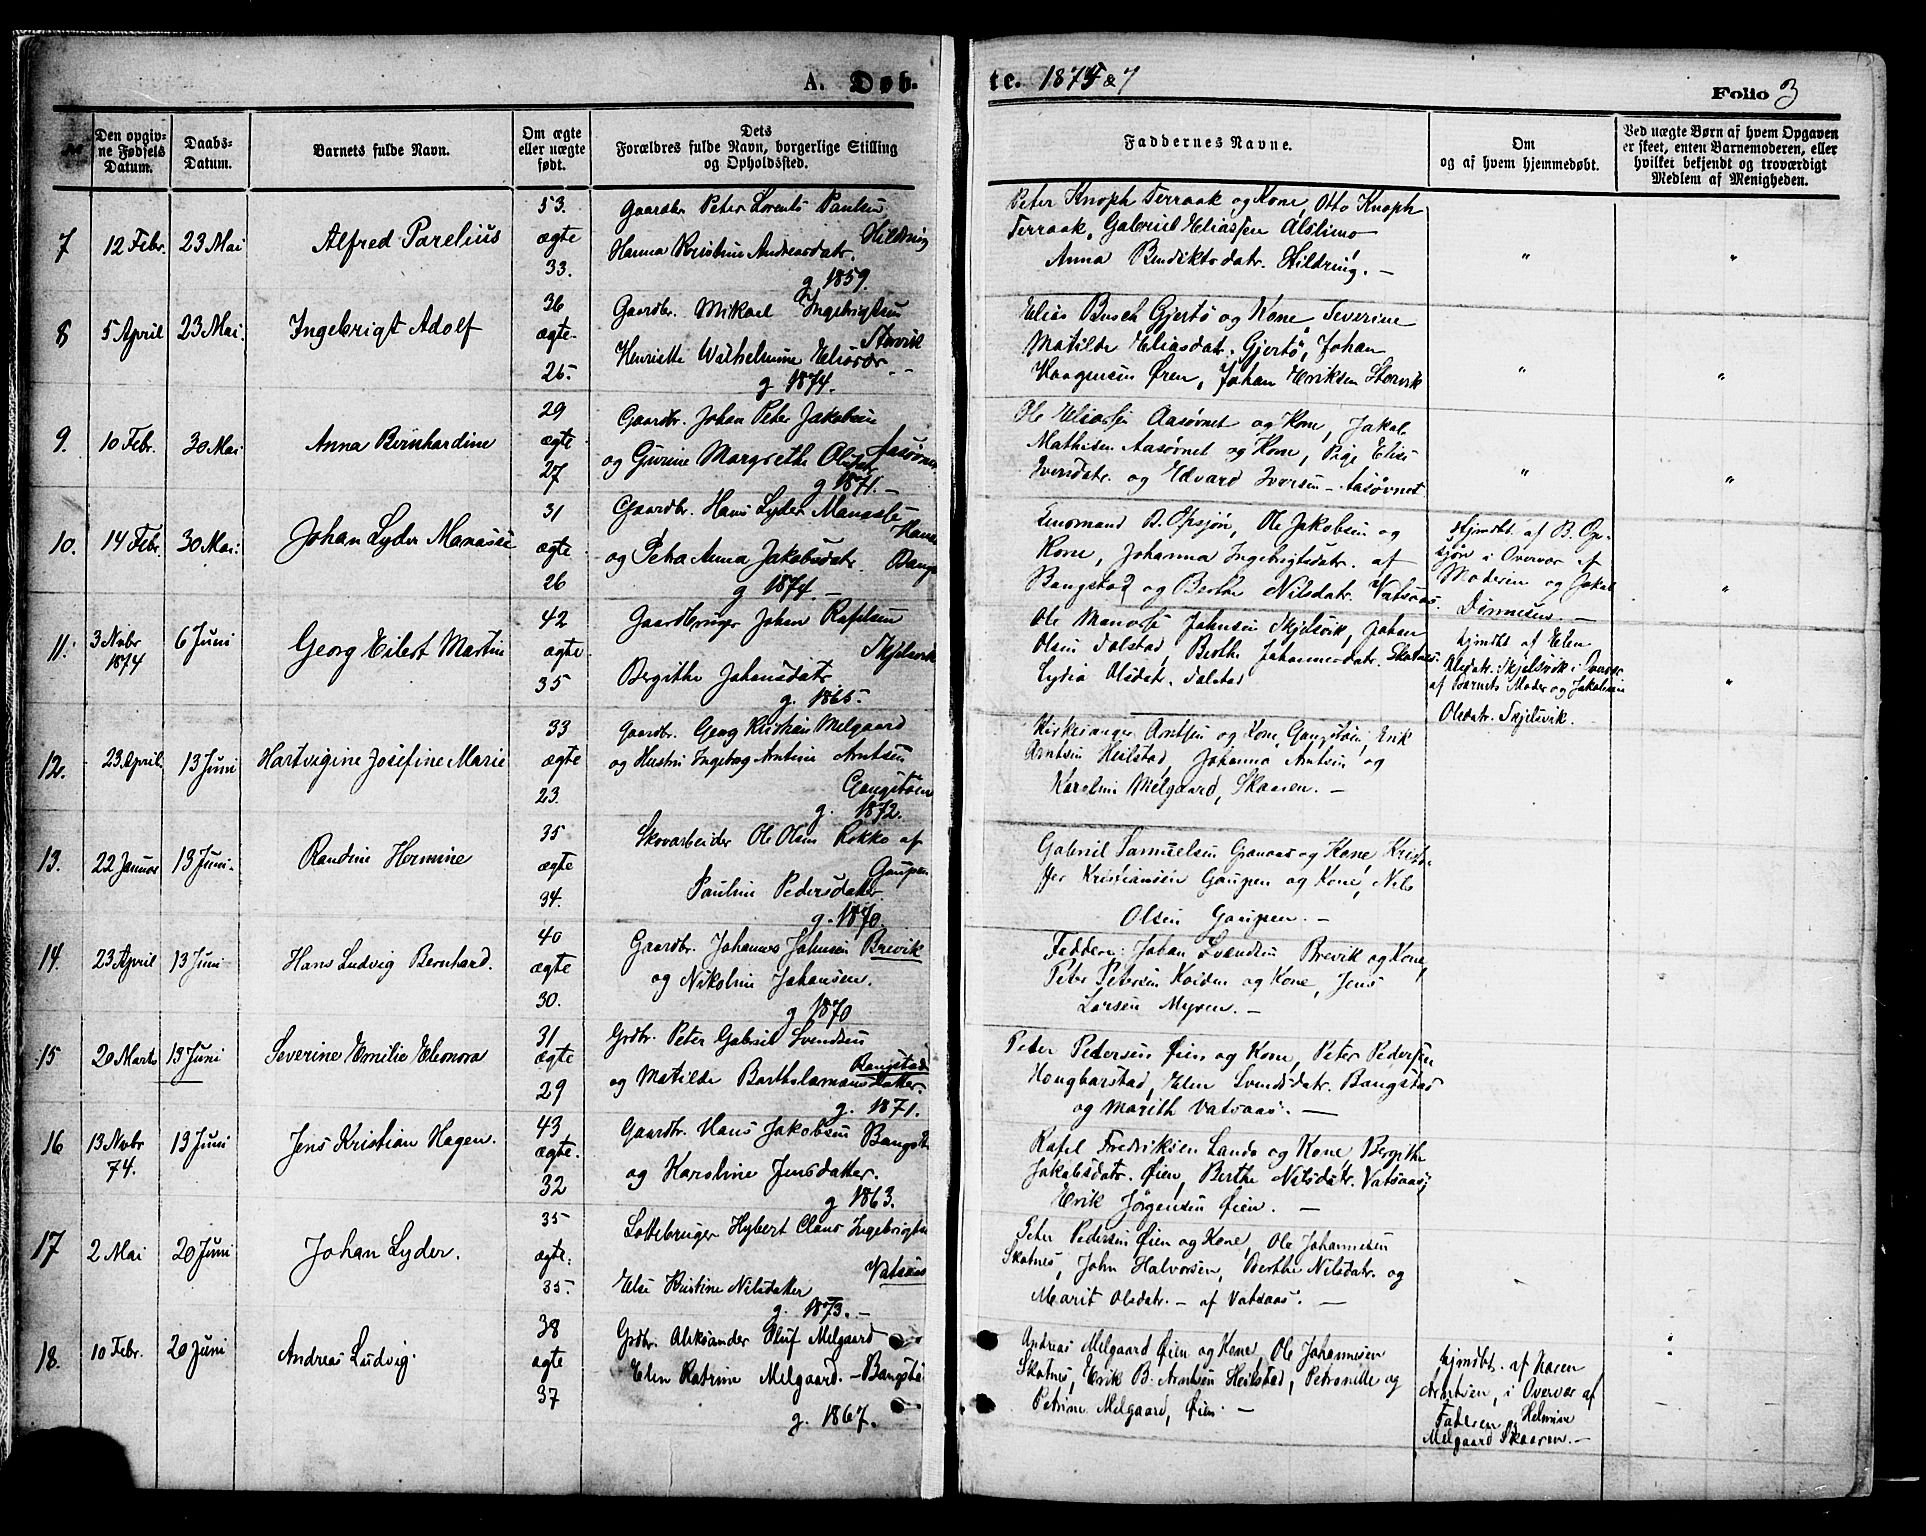 A. Døb-
Den opgiv-
ne Fødsels
Datum.
Daabs-
Datum.
Barnets fulde Navn.
Om ægte
eller uægte
født.
Dets
Forældres fulde Navn, borgerlige Stilling
og Opholdssted.
7
12 Febr.
23 Mai
Alfred Parelius
53.
ægte
33.
Gaardbr Peter Lorents Paulsen
Hildring
Hanna Kristine Andreasdatr.
g. 1859.
8
5 April
23 Mai.
Ingebrigt Adolf
36
ægte.
25.
Gaardbr. Mikael Ingebrigtsen
Henriette Wilhelmine
g. 1874.
9.
10 Febr.
30 Mai
Anna Bernhardine
29
ægte
27
Gaardbr. Johan Peter Jakobsen
og Gurine Margrethe Olsdatr
g. 1871.
10.
14 Febr.
30 Mai
Johan Lyder Manasse
31
ægte
26
Gaardbr. Hans Lyder Manasse
og Petra Anna Jakobsdatr.
g. 1874.
11.
3 Nvbr
1874
6 Juni
Georg Eilert Martin
42
ægte
35
Gaardbruger Johan Rafelsen
Skjelsvik
Bergithe Johansdatr.
g. 1865.
12.
23 April
13 Juni
Hartvigine Josefine Marie
33
ægte
23.
Gaardbr. Georg Kristian Melgaard
og Hustru Ingeborg Arntine Arntsen
Gangstøen
g. 1872.
13.
22 Januar
13 Juni.
Randine Hermine
35
ægte
34.
Skovarbeider Ole Olsen Rokko af
Gaupen
Pauline Pedersdatter
g. 1870.
14.
23 April
13 Juni
Hans Ludvig Bernhard.
40
ægte
30.
Gaardbr. Johannes Johnsen Brevik
og Nikoline Johansen.
g. 1870
15
20 Marts
13 Juni
Severine Emilie Eleonora
31
ægte
29
Grdbr. Peter Gabriel Svendsen
Bangstad
og Matilde Bartholomæusdatter.
g. 1871.
16
13 Nvbr
74.
13 Juni
Jens Kristian Hagen.
43
ægte.
32
Gaardbr. Hans Jakobsen
og Karoline Jensdatter.
g 1863.
17
2 Mai
20 Juni
Johan Lyder.
35
ægte.
35.
Hybert Claus
Vatsaas
Else Kristine Nilsdatter
g. 1873.
18.
10 Febr.
20 Juni
Andreas Ludvig.
38
ægte
37
Grdbr. Aleksander Oluf Melgaard
Elen Katrine Melgaard.
g. 1867.
te. 1875
7
Folio 3
Faddernes Navne.
Om
og af hvem hjemmedøbt.
Ved uægte Børn af hvem Opgaven
er skeet, enten Barnemoderen, eller
hvilket bekjendt og troværdigt
Medlem af Menigheden.
Peter Knoph Terraak og Kone, Otto Knoph
Terraak, Gabriel Eliassen
Anna Bendiktsdatr. Hildring. —
" "
Elias Busch Gjertø og Kone, Severine
Matilde Eliasdatr. Gjertø, Johan
Haagensen Øren, Johan Eriksen Storvik
" "
Ole Eliassen Aasøvnet og Kone, Jakob
Mathisen Aasøvnet og Kone, Pige Elise
Iversdatr. og Edvard Iversen – Aasøvnet
" "
B. Opsjøn, Ole Jakobsen og
Kone, Johanna Ingebrigtsdatr. af
Bangstad og Berthe Nilsdatr. Vatsaas.
Hjmdbt. af B. Op-
sjøn i Overvær af
Moderen og Jakob
"
Ole Manasse Johnsen Skjelsvik, Johan
Olsen Dalstad, Berthe Johannesdatr. Skotnes.
Lydia Olsdatr. Dalstad
hjmdbt af Elen
Olsdatr. Skjelsvik i Overvær
af Barnets Moder og
Olsdatr. Skjelsvik.
"
Kirkesanger Arntsen og Kone, Gangstøen, Erik
Arntsen Heilstad, Johanna Arntsen og
Karoline Melgaard, Skaaren. —
Gabriel Samuelsen Granaas og Kone, Kristo-
ffer Kristiansen Gaupen og Kone, Nils
Olsen Gaupen. —
Faddere: Johan Svendsen Brevik og Kone,
Peter Petersen Kolden og Kone, Jens
Larsen Myren. —
Peter Pedersen Øien og Kone, Peter Pedersen
Hongbarstad, Elen Svendsdatr. Bangstad
og Marith Vatsaas. —
Rafel Fredriksen Lande og Kone, Bergithe
Jakobsdatr. Øien, Berthe Nilsdatr. Vatsaas,
Erik Jørgensen Øien. —
Peter Pedersen Øien og Kone, Ole Johannesen
Skotnes, John Halvorsen, Berthe Nilsdatr. og
Marit Olsdatr. – af Vatsaas. —
Andreas Melgaard Øien og Kone, Ole Johannesen
Skotnes, Erik B. Arntsen Heilstad, Petronelle og
Petrine Melgaard, Øien. —
hjmdbt. af Karen
Arntsen, i Overvær af
Faderen og Helmine
Melgaard Skaaren. —